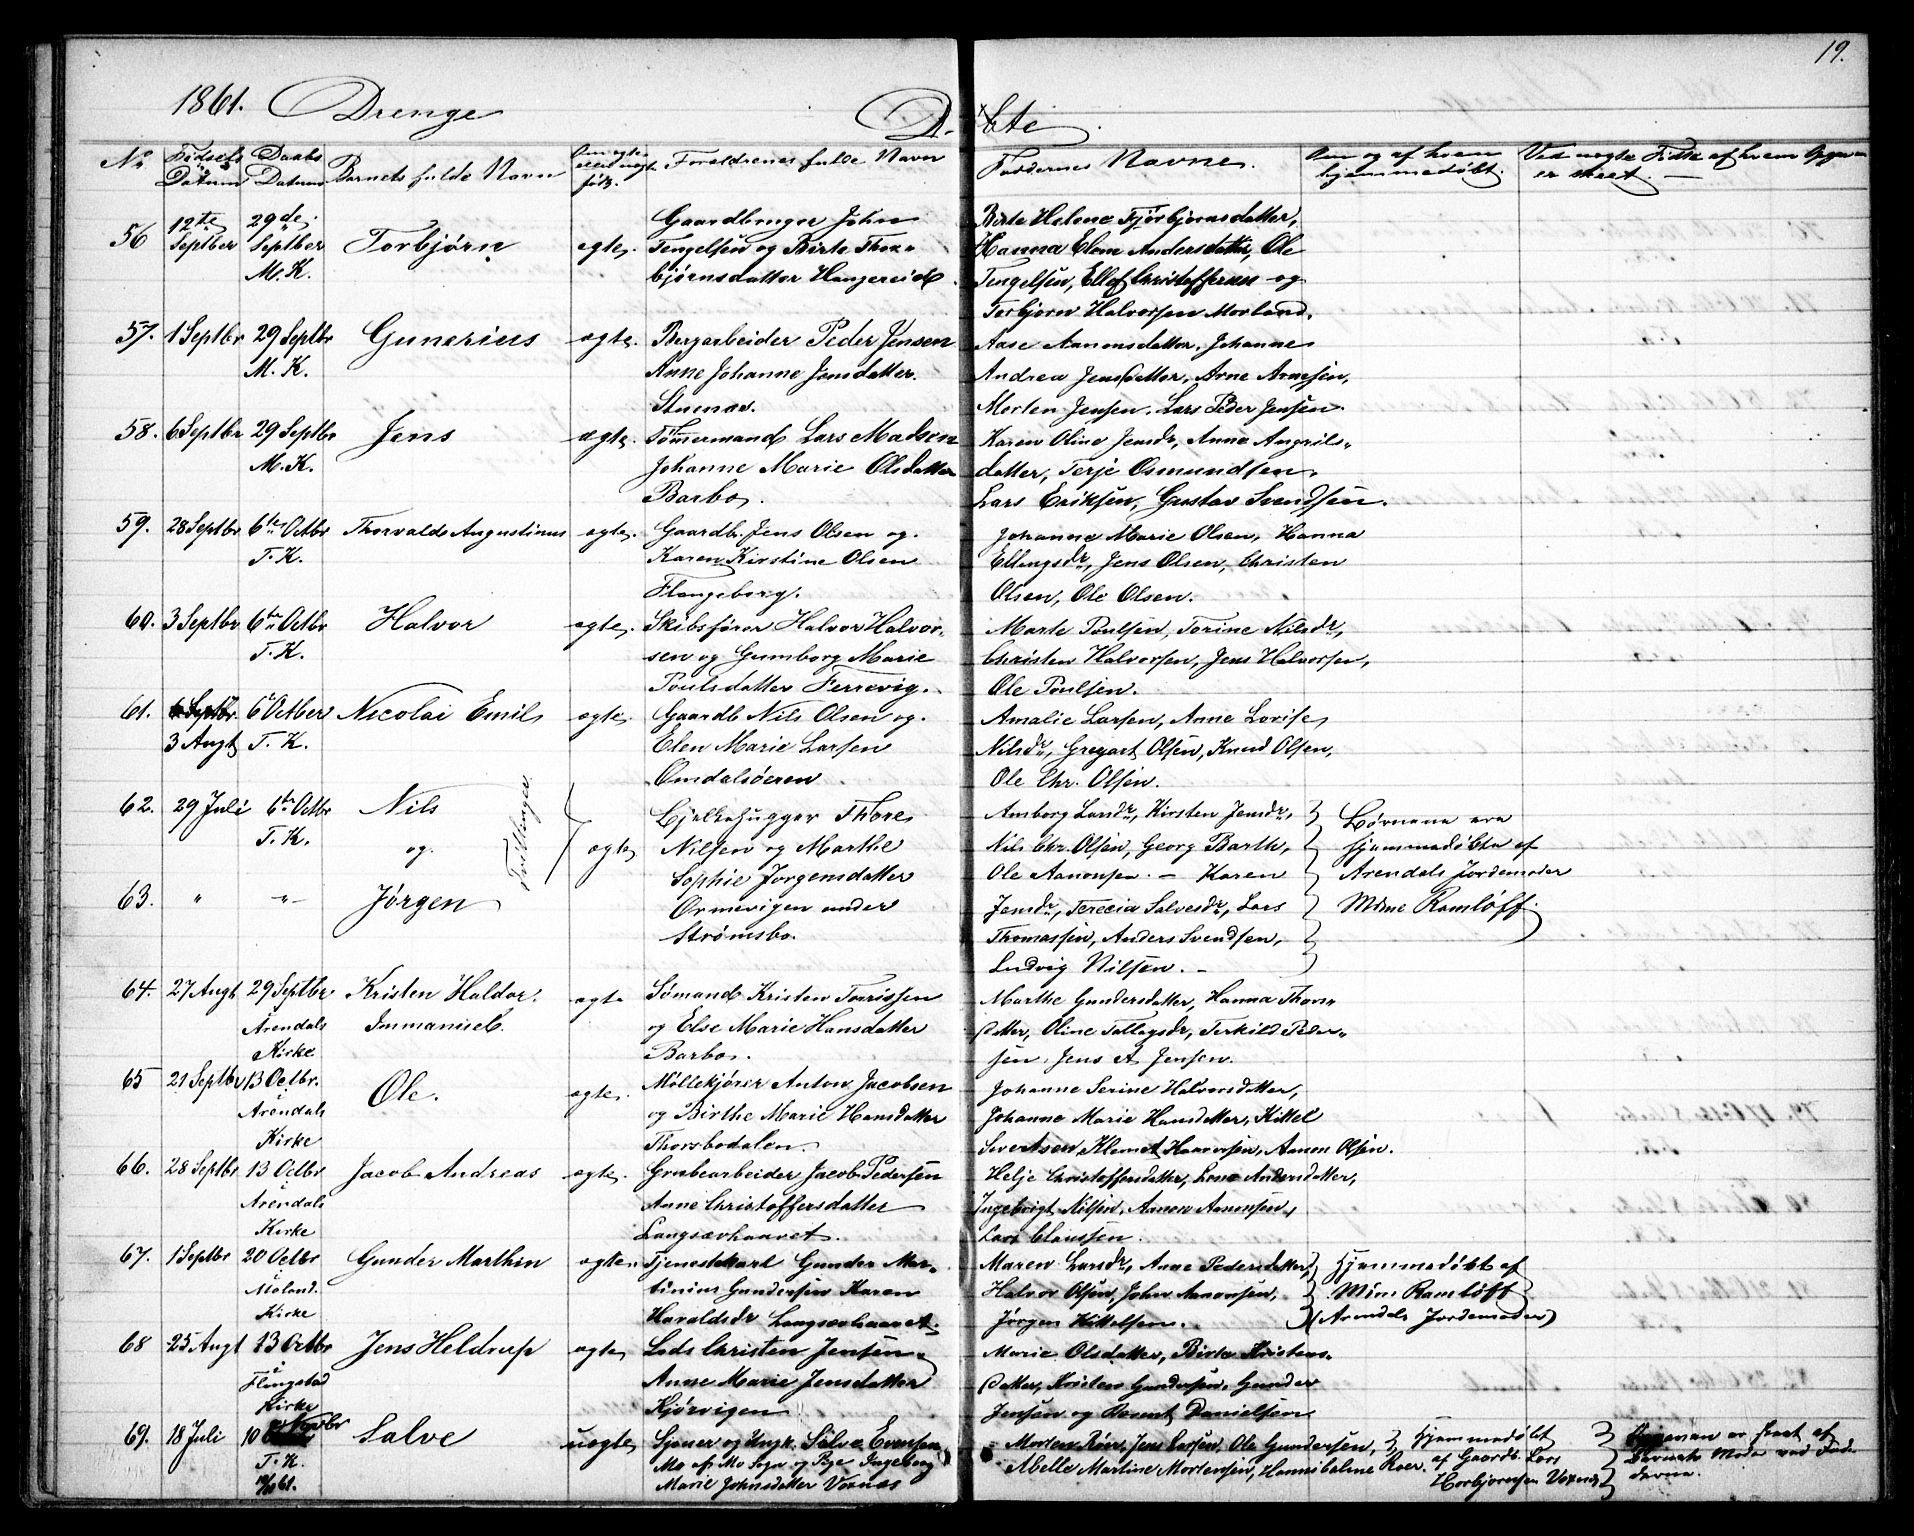 19.
1861. Drenge
D. bte
No Fødsels Datum Daabs Datum Barnets fulde Navn Om egte eller uegte født. Foreldrenes fulde Navn Faddernes Navne. Om og af hvem hjemmedøbt. Ved uegte Fødte af hvem Opgaven er skeet.
56 12te Septber 29de Septber M. K. Torbjørn egte.
Gaardbruger John
Tengelsen og Birte Thor-
bjørnsdatter Hangereid.
Birte Helene Torbjørnsdatter,
Hanna Elene Andersdatter, Ole
Tengelsen, Ellef Christoffersen og
Torbjørn Halvorsen Morland.
57. 1 Septbr 29 Septbr M. K. Gunerius egte.
Bergarbeider Peder Jensen
Anne Johanne Jensdatter.
Stuenes.
Aase Aanonsdatter, Johanne
Andrea Jensdatter, Arne Arnesen,
Morten Jensen, Lars Peder Jensen.
58. 6 Septbr 29 Septbr M. K. Jens egte.
Tømermand Lars Madsen
Johanne Marie Olsdatter
Barbo.
Karen Oline Jensdr, Anne Angrils-
datter, Terje Osmundsen,
Lars Eriksen, Gustav Svendsen.
59. 28 Septbr 6te Octbr T. K. Thorvald Augustinus egte.
Gaardb. Jens Olsen og
Karen Kirstine Olsen
Flangeborg.
Johanne Marie Olsen, Hanna
Ellingsdr, Jens Olsen, Christen
Olsen, Ole Olsen.
60. 3 Septbr 6te Octbr T. K. Halvor egte.
Skibsfører Halvor Halvor-
sen og Gumborg Marie
Poulsdatter Ferrevig.
Marte Poulsen, Torine Nilsdr,
Christen Halvorsen, Jens Halvorsen,
Ole Poulsen.
61. 3 Augt 6 Octber T. K. Nicolai Emil egte.
Gaardb Nils Olsen og
Elen Marie Larsen
Omdalsøeren.
Amalie Larsen, Anne Lovise
Nilsdr, Gregart Olsen, Knud Olsen,
Ole Chr. Olsen.
62. 29 Juli 6te Octbr T. K. Nils
og
63. " " Jørgen
Tvillinger egte
Bjelkehugger Thore
Nilsen og Marthe
Sophie Jørgensdatter
Ormevigen under
Strømsbo.
Amborg Larsdr, Kirsten Jensdr,
Nils Chr. Olsen, Georg Barth,
Ole Aanonsen. - Karen
Jensdr, Terecia Salvesdr, Lars
Thomassen, Anders Svendsen,
Ludvig Nilsen. -
Børnene ere
hjemmedøbte af
Arendals Jordemoder
Mdme Ramløff
64. 27 Augt 29 Septbr Arendals Kirke Kristen Haldor Immanuel. egte
Sømand Kristen Torrissen
og Else Marie Hansdatter
Barbo.
Marthe Gundersdatter, Hanna Thors-
datter, Oline Tellegsdr, Terkild Peder-
sen, Jens A Jensen.
65 21 Septbr 13 Octbr. i Arendals Kirke Ole. egte.
Møllekjører Anton Jacobsen
og Birthe Marie Hansdatter
Thorsbodalen.
Johanne Serine Halvorsdatter,
Johanne Marie Hansdatter, Kittel
Sivertsen, Klemet Haavorsen, Aanon Olsen.
66. 28 Septbr 13 Octbr i Arendals Kirke Jacob Andreas egte.
Grubearbeider Jacob Pedersen
Anne Christoffersdatter
Langsævhaavet.
Helje Christoffersdatter, Lene Andersdatter,
Ingebrigt Nilsen, Aanon Aanonsen,
Lars Claussen.
67. 1 Septbr 20 Octbr i Moland Kirke Gunder Marthin egte.
Tjenestekarl Gunder Mar-
tinius Gundersen Karen
Haraldsdr Langsævhaavet.
Maren Larsdr, Anne Pedersdatter,
Halvor Olsen, John Aanonsen,
Jørgen Kittelsen.
Hjemmedøbt af
Mdme Ramløff
(Arendals Jordemoder)
68 25 Augt 13 Octbr i Flangstad Kirke Jens Heldrup egte
Lods Christen Jensen
Anne Marie Jensdatter
Kjørvigen
Marie Olsdatter, Birte Kristens-
datter, Kristen Gundersen, Gunder
Jensen og Berent Danielsen
69. 18 Juli 10 Novbr T. K. Salve uegte
Sjøner og Ungk. Salve Evensen
Mo af Mo Sogn og Pige Ingeborg
Marie Johnsdatter Voxnes
Morten Røer, Jens Larsen, Ole Gundersen,
Abelle Martine Mortensen, Hannibaline Roer.
Hjemmedøbt
af Gaardb. Lars
Torbjørnsen Voxnes
Opgaven er skeet af
Barnets Moder ved Fad-
derne.